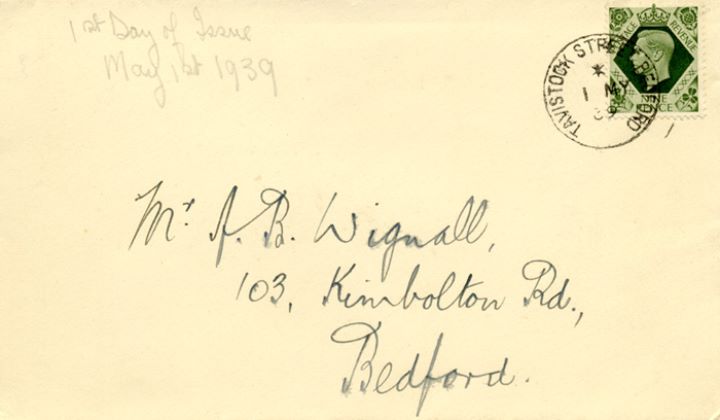 1st Day of Issue
May 1st 1939
POSTAGE REVENUE
NINE PENCE
TAVISTOCK STREET BEDFORD
*
1 MY
39
Mr. A. B. Wignall,
103, Kimbolton Rd.,
Bedford.